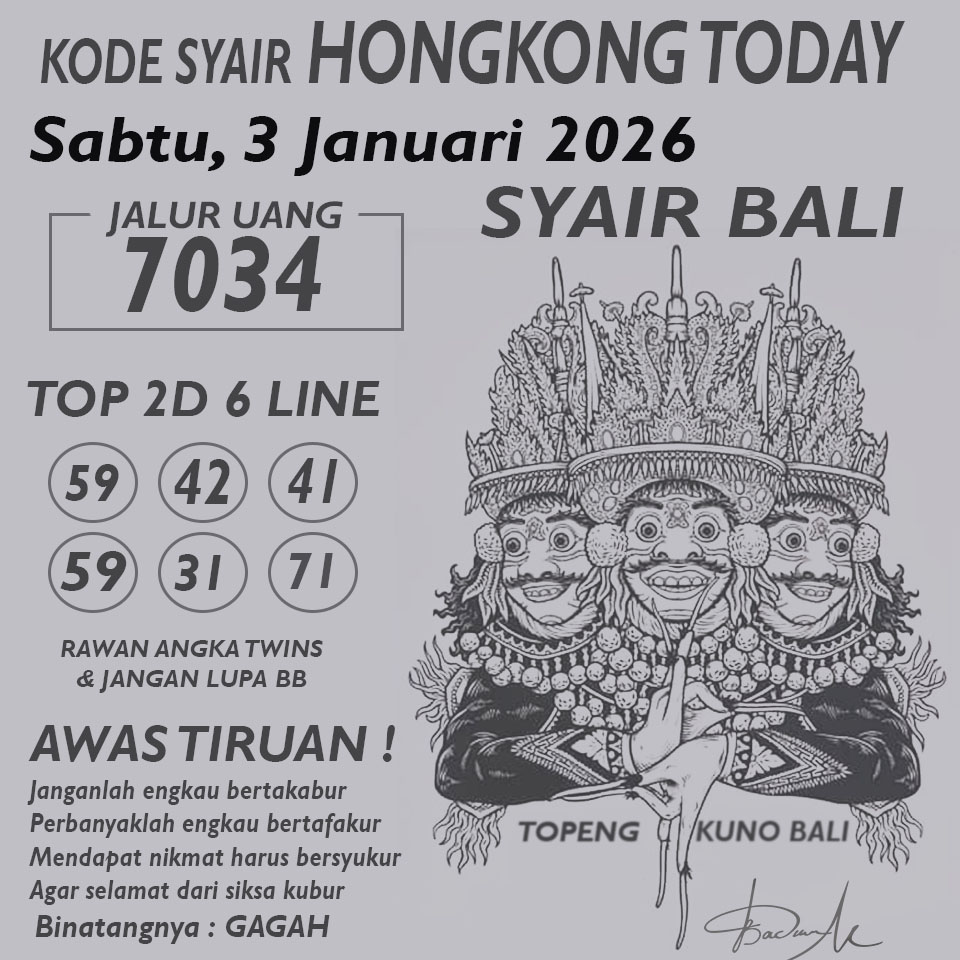 KODE SYAIR HONGKONG TODAY
Sabtu, 3 Januari 2026
SYAIR BALI
JALUR UANG
7034
TOP 2D 6 LINE
59 42 41
59 31 71
RAWAN ANGKA TWINS
& JANGAN LUPA BB
AWAS TIRUAN !
Janganlah engkau bertakabur
Perbanyaklah engkau bertafakur
Mendapat nikmat harus bersyukur
Agar selamat dari siksa kubur
Binatangnya : GAGAH
TOPENG KUNO BALI